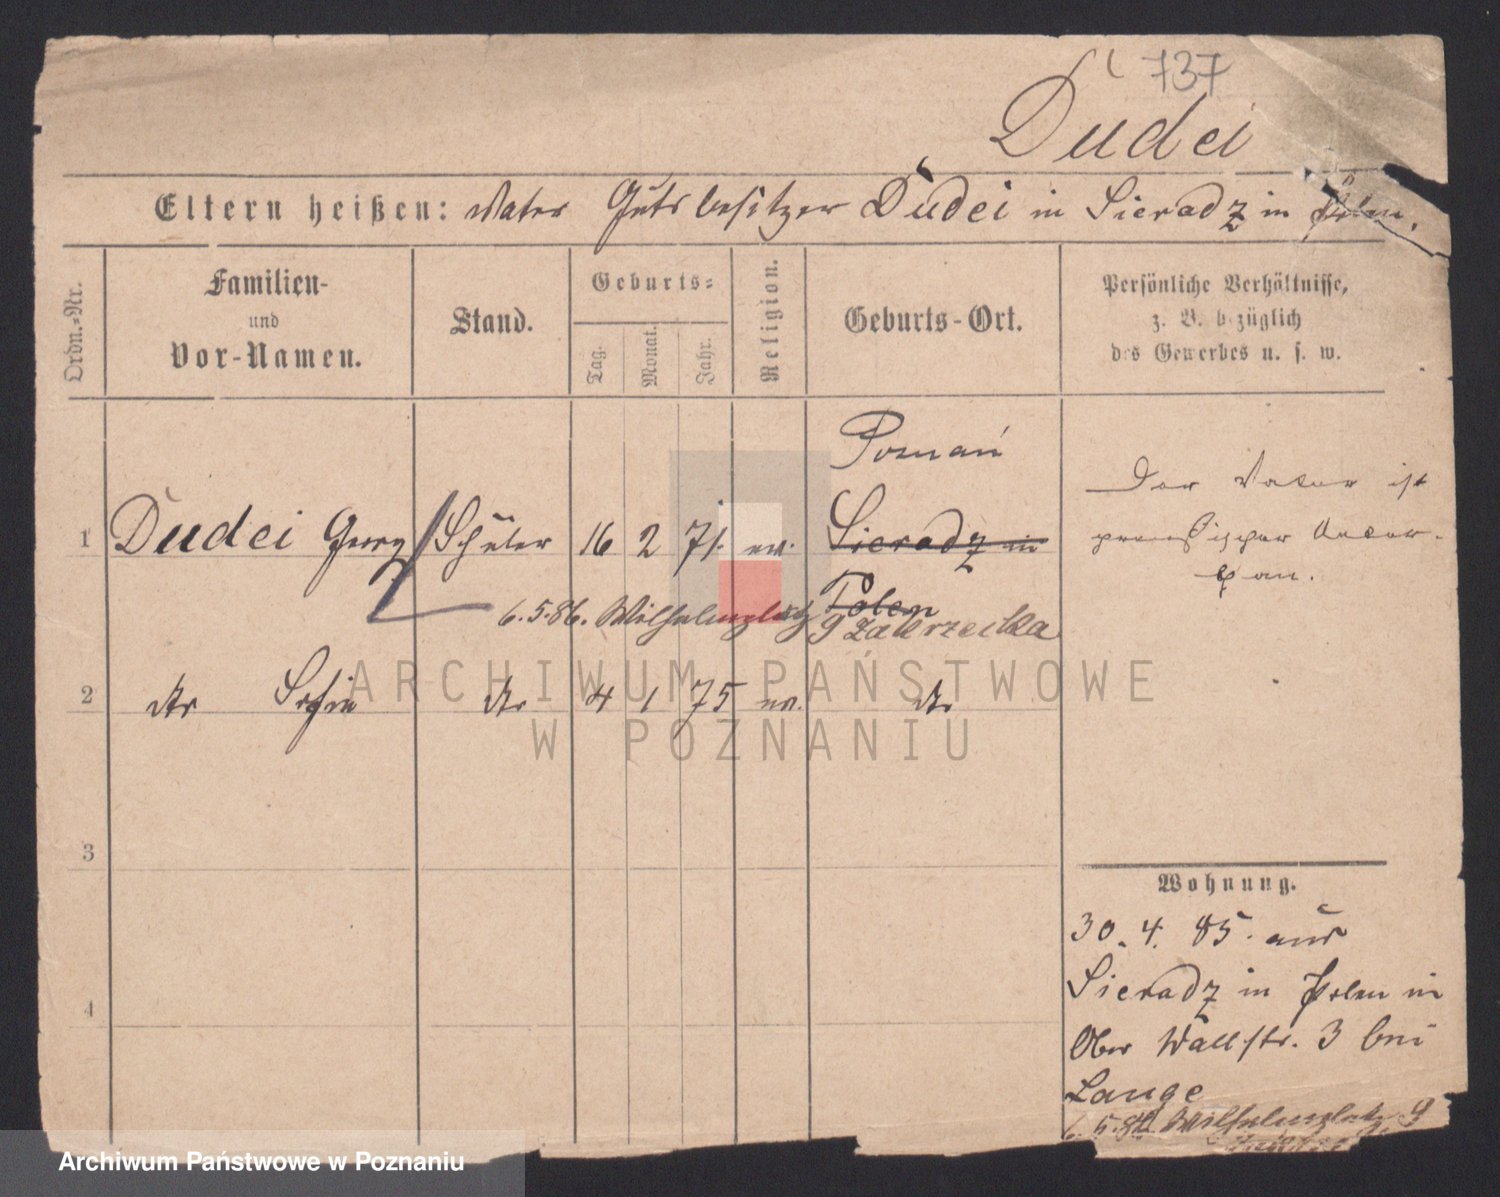 737
Dudei
Eltern heißen: Vater Gutsbesitzer Dudei in Sieradz in Polen.
Ordn.-Nr.
Familien-
und
Vor-Namen.
Stand.
Geburts-
Tag.
Monat.
Jahr.
Religion.
Geburts-Ort.
Persönliche Verhältnisse,
z. B. bezüglich
des Gewerbes u. s. w.
1 Dudei Georg Schüler 16 2 71. ev.
Poznań
Sieradz in
Polen
Der Vater ist
preußischer Unter-
than.
6.5.86. Wilhelmsplatz 9 Zakrzecka
2 dto Sofie dto 4 1 75 ev. dto
3
4
Wohnung.
30. 4. 85. aus
Sieradz in Polen in
Ober Wallstr. 3 bei
Lange
6. 5. 86 Wilhelmsplatz 9
ARCHIWUM PAŃSTWOWE
W POZNANIU
Archiwum Państwowe w Poznaniu